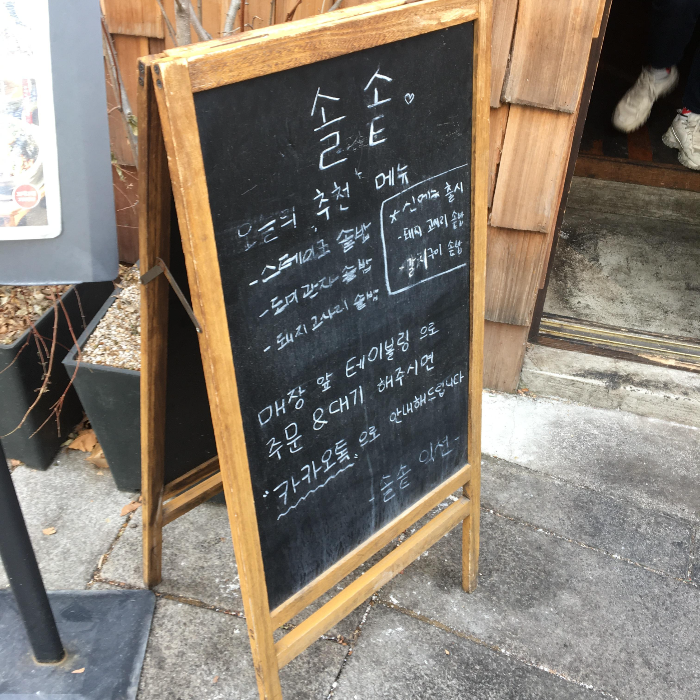 솔솥
오늘의 추천 메뉴
-스테이크 솥밥
-도미관자 솥밥
-돼지고사리 솥밥
*신메뉴 출시
-돼지 고사리 솥밥
솥밥
매장 앞 테이블링 으로
주문 & 대기 해주시면
"카카오톡"으로 안내해드립니다
-솔솥 익선-